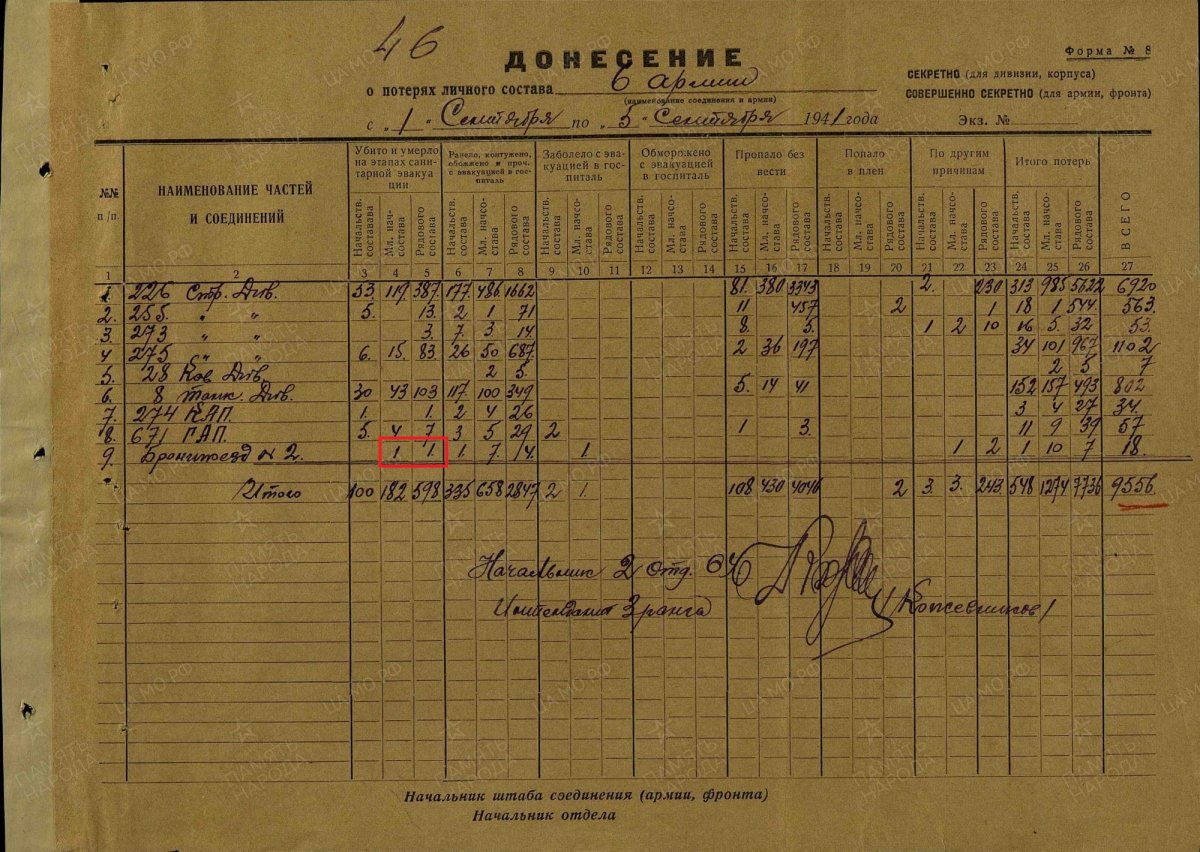 46
ДОНЕСЕНИЕ
Форма № 8
о потерях личного состава 6 армии
(наименование соединения и армии)
СЕКРЕТНО (для дивизии, корпуса)
СОВЕРШЕННО СЕКРЕТНО (для армии, фронта)
с „1" Сентября по „5" Сентября 1941 года
Экз. №
№№ п/п.
НАИМЕНОВАНИЕ ЧАСТЕЙ И СОЕДИНЕНИЙ
Убито и умерло на этапах санитарной эвакуации
Ранено, контужено, обожжено и проч. с эвакуацией в госпиталь
Заболело с эвакуацией в госпиталь
Обморожено с эвакуацией в госпиталь
Пропало без вести
Попало в плен
По другим причинам
Итого потерь
ВСЕГО
Начальств. состава Мл. начсостава Рядового состава Начальств. состава Мл. начсостава Рядового состава Начальств. состава Мл. начсостава Рядового состава Начальств. состава Мл. начсостава Рядового состава Начальств. состава Мл. начсостава Рядового состава Начальств. состава Мл. начсостава Рядового состава Начальств. состава Мл. начсостава Рядового состава Начальств. состава Мл. начсостава Рядового состава
1 2 3 4 5 6 7 8 9 10 11 12 13 14 15 16 17 18 19 20 21 22 23 24 25 26 27
1. 226 Стр. Див. 53 119 387 177 486 1662 81 380 3343 2 230 313 985 5622 6920
2. 255 " " 5. 13. 2 1 71 11 457 2 1 18 1 544 563
3. 273 " " 3. 7. 3 14 8. 5. 1 2 10 16 5. 32 53.
4. 275 " " 6. 15. 83 26 50 687 2 36 197 34 101 967 1102
5. 28 Кав Див. 2 5 2 5 7
6. 8 танк. Див. 30 43 103 117 100 349 5. 14 41 152 157 493 802
7. 274 КАП. 1. 1. 2 4 26 3 4 27 34.
8. 671 ГАП. 5. 4 7 3 5 29 2 1 3. 11 9 39 57
9. Бронипоезд № 2. 1 1. 1. 7. 14. 1. 1 2 1 10 7 18.
Итого 100 182 598 335 658 2847 2 1. 108 430 4046 2 3. 3. 243 548 1274 7736 9556
Начальник 2 отд.
Интендант 3 ранга /Кожевников/
Начальник штаба соединения (армии, фронта)
Начальник отдела
ПАМЯТЬ НАРОДА
ЦАМО.РФ